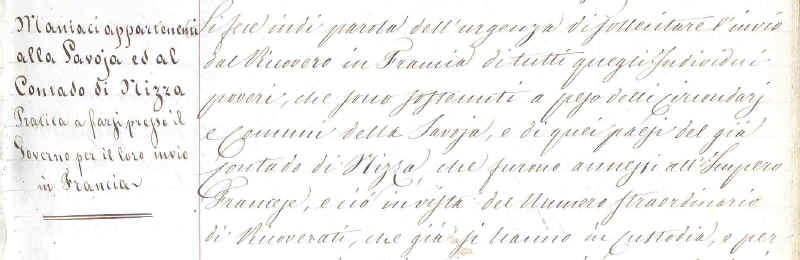 Maniaci appartenenti
alla Savoja ed al
Contado di Nizza
Pratica a farsi presso il
Governo per il loro invio
in Francia
Si fece indi parola dell'urgenza di sollecitare l'invio
dal Ricovero in Francia di tutti quegli Individui
poveri, che sono sostenuti a peso delli Circondarj
e Comuni della Savoja, e di quei paesi del già
Contado di Nizza, che furono annessi all'Impero
Francese, e ciò in vista del Numero straordinario
di Ricoverati, che già si hanno in Custodia, e per-